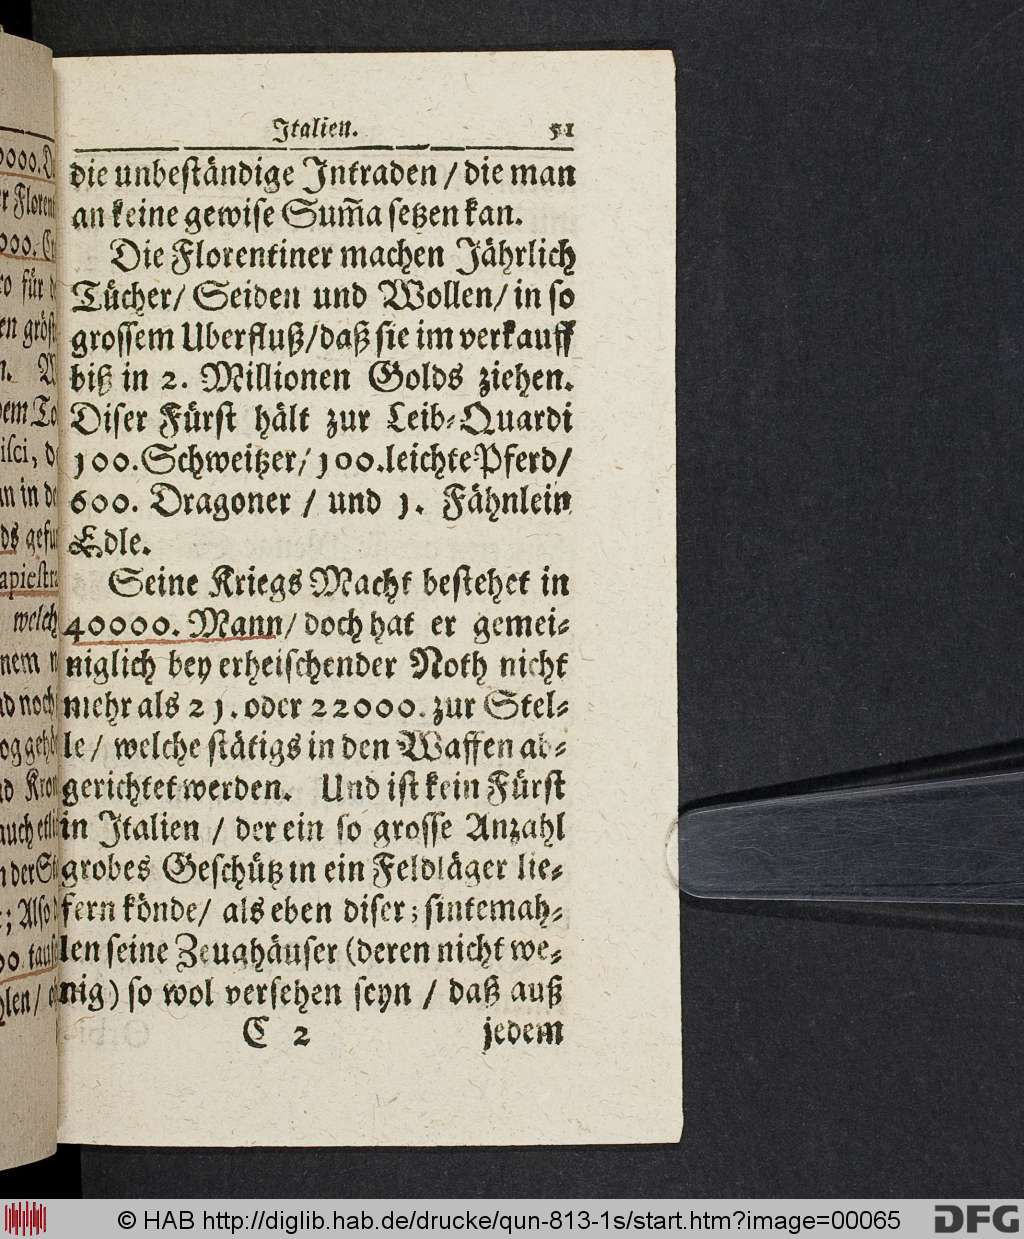 Italien. 51
die unbeständige Intraden / die man
an keine gewise Sum̃a setzen kan.
Die Florentiner machen Jährlich
Tücher/ Seiden und Wollen/ in so
grossem Uberfluß/daß sie im verkauff
biß in 2. Millionen Golds ziehen.
Diser Fürst hält zur Leib-Quardi
100. Schweitzer/ 100. leichte Pferd/
600. Dragoner / und 1. Fähnlein
Edle.
Seine Kriegs Macht bestehet in
40000. Mann/ doch hat er gemei-
niglich bey erheischender Noth nicht
mehr als 21. oder 22000. zur Stel-
le / welche stätigs in den Waffen ab-
gerichtet werden. Und ist kein Fürst
in Italien / der ein so grosse Anzahl
grobes Geschütz in ein Feldläger lie-
fern könde/ als eben diser; sintemah-
len seine Zeughäuser (deren nicht we-
nig) so wol versehen seyn / daß auß
C 2 jedem
© HAB http://diglib.hab.de/drucke/qun-813-1s/start.htm?image=00065
DFG